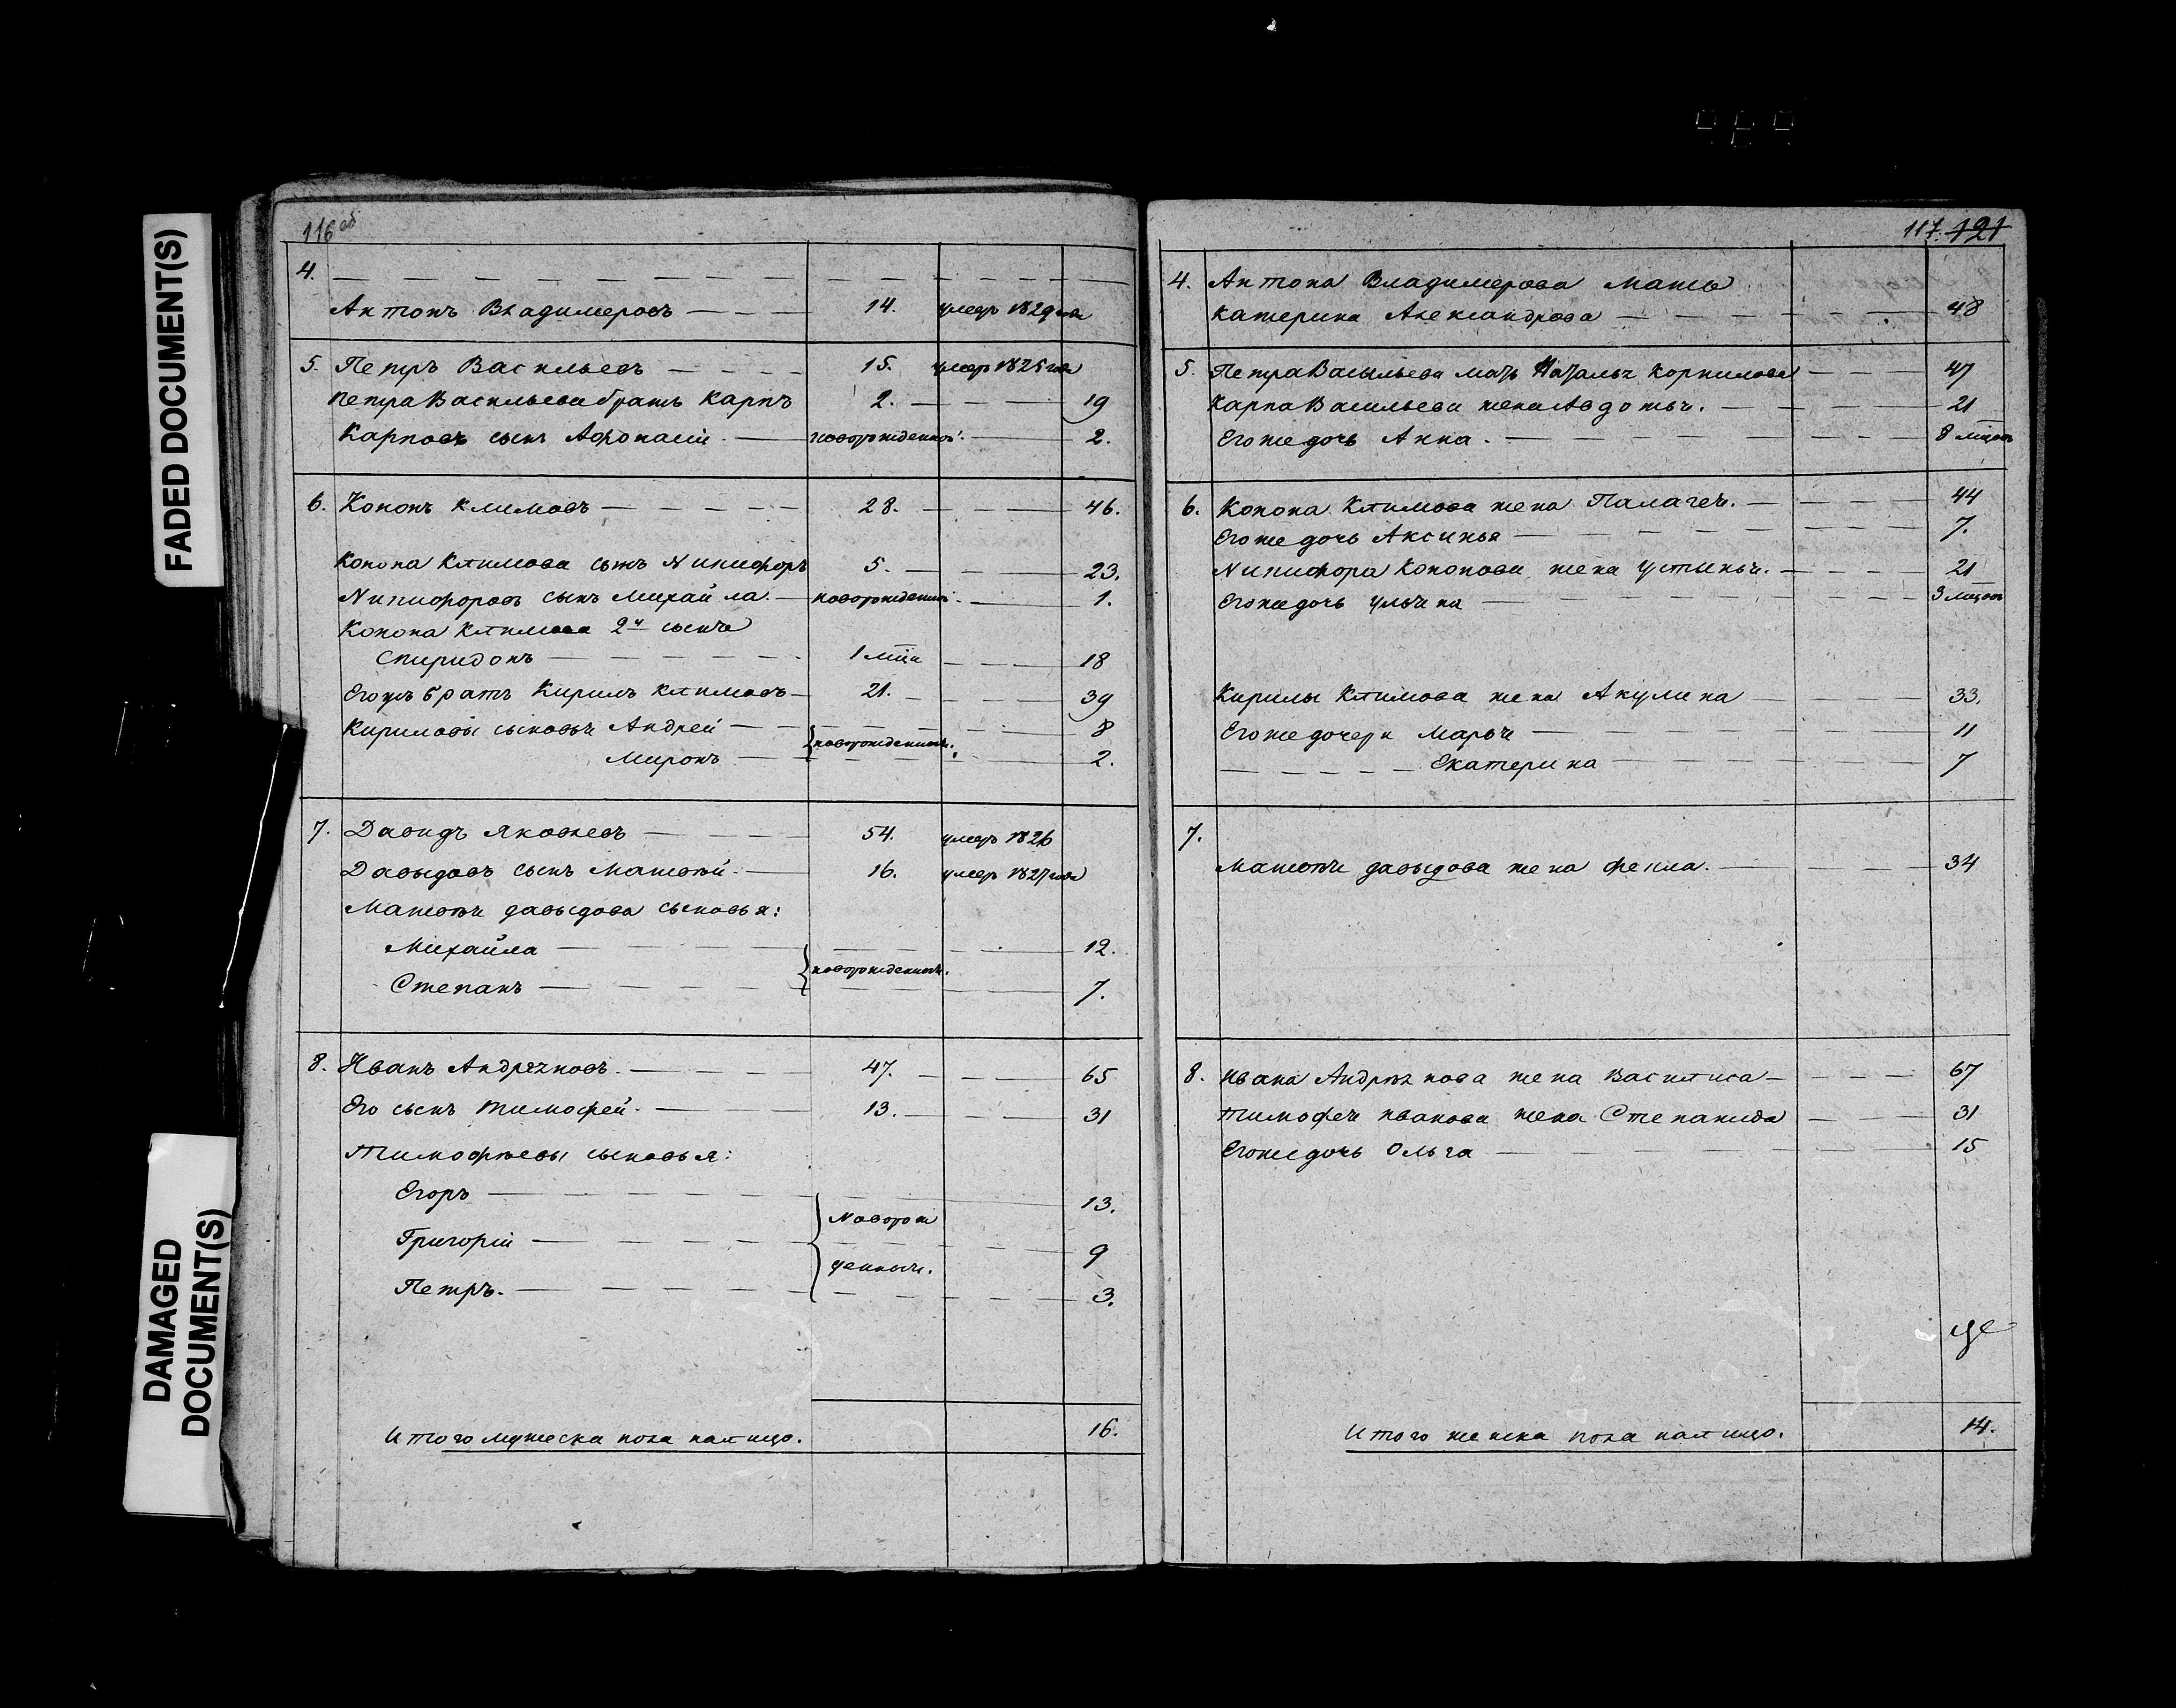 FADED DOCUMENT(S)
DAMAGED
DOCUMENT(S)
116 об
4.
Антонъ Владимеровъ 14. умеръ 1829 года
5. Петръ Васильевъ 15. умеръ 1825 года
Петра Васильева братъ Карпъ 2. 19
Карповъ сынъ Афонасій новорожденной. 2.
6. Кононъ Климовъ 28. 46.
Конона Климова сынъ Никифоръ 5. 23.
Никифоровъ сынъ Михайла новорожденной. 1.
Конона Климова 2й сынъ
Спиридонъ 1 мца 18
Егожъ братъ Кирилъ Климовъ 21. 39
Кириловы сыновья Андрей 8
новорожденныя.
Миронъ 2.
7. Давидъ Яковлевъ 54. умеръ 1826
Давыдовъ сынъ Матвѣй 16. умеръ 1827 года
Матвѣя давыдова сыновья:
Михайла 12.
новорожденныя.
Степанъ 7.
8. Иванъ Андреяновъ. 47. 65
Его сынъ Тимофей. 13. 31
Тимофѣевы сыновья:
Егоръ 13.
Новорож
Григорій 9
денныя.
Петръ. 3.
Итого мужеска пола налицо. 16.
117. 121
4. Антона Владимерова мать
Катерина Александрова 48
5. Петра Васильева мать Наталья Корнилова 47
Карпа Васильева жена Авдотья. 21
Егоже дочь Анна. 8 мцовъ
6. Конона Климова жена Палагея. 44
Егоже дочь Аксинья 7.
Никифора Кононова жена Устинья. 21
Егоже дочь Ульяна 3 мцовъ
Кирилы Климова жена Акулина 33.
Егоже дочери Марья 11
Екатерина 7
7.
Матвѣя давыдова жена Фекла. 34
8. Ивана Андреянова жена Василиса 67
Тимофея иванова жена Степанида 31
Егоже дочь Ольга 15
Итого женска пола налицо. 14.